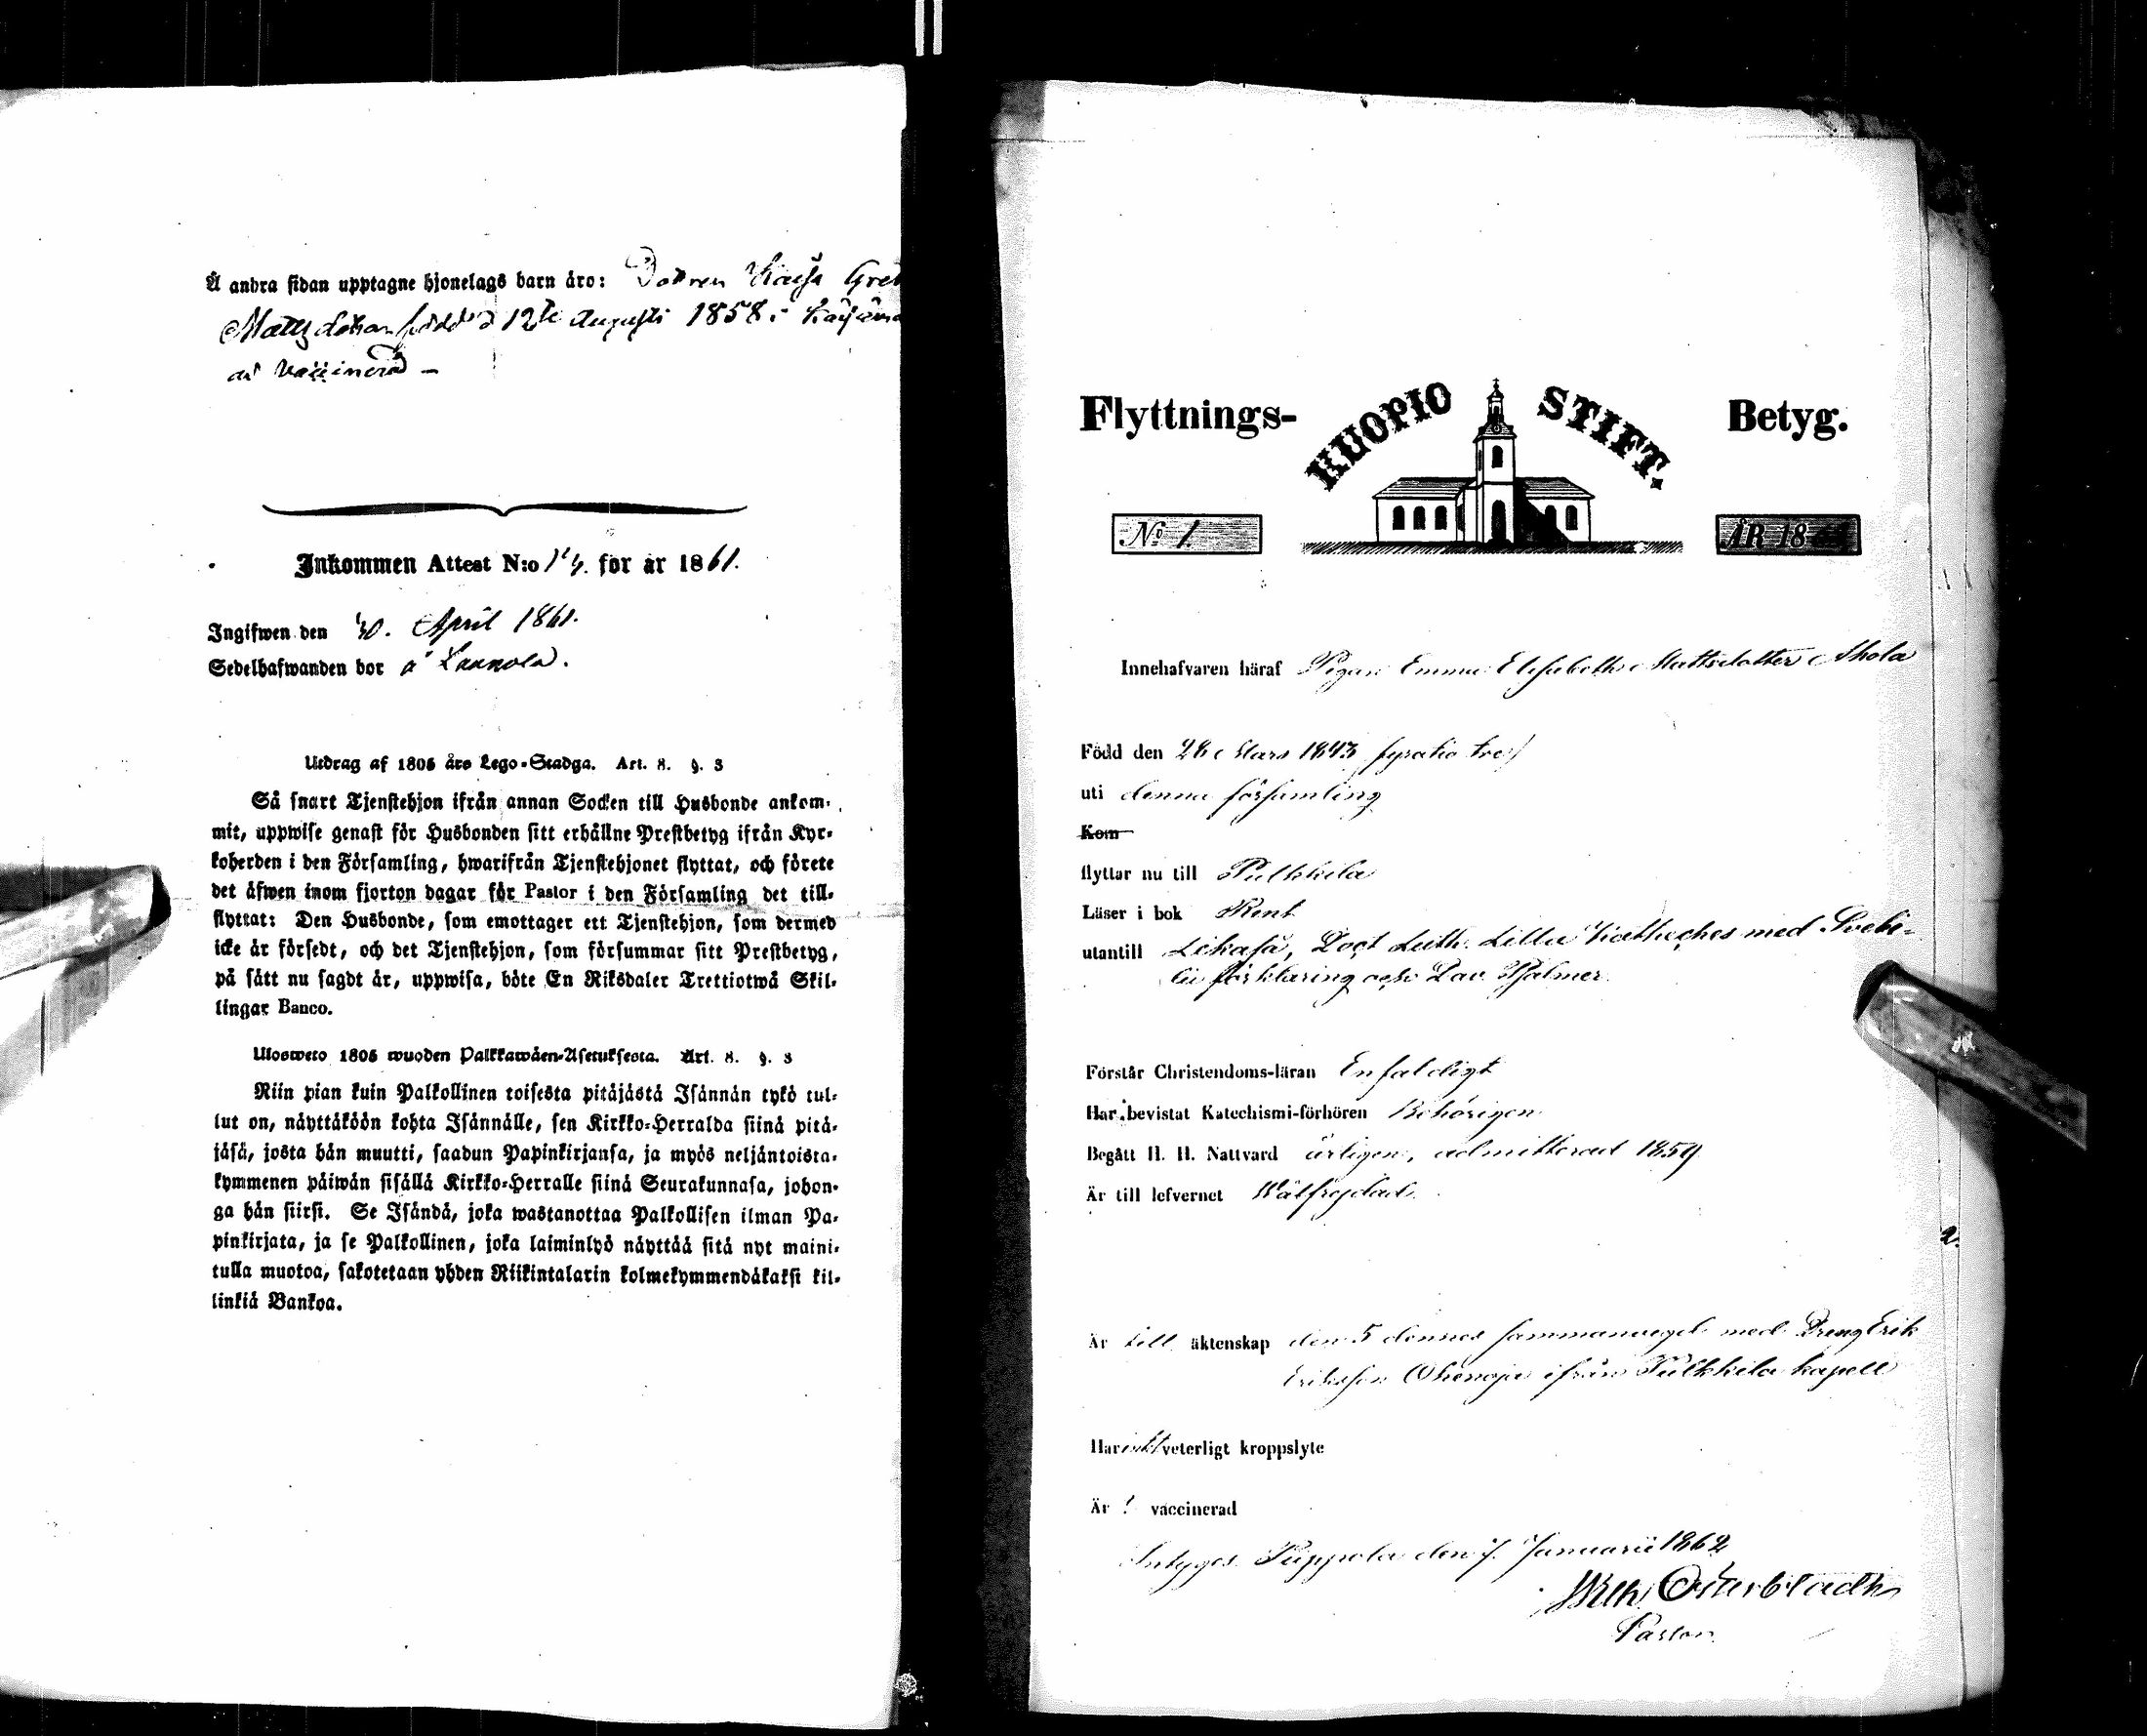 Å andra sidan upptagne hjonelags barn äro: Dottren Kajsa Gret
Mattsdotter född d 12te Augusti 1858 i
är vaccinerad –
Inkommen Attest N:o 14. för år 1861.
Ingifwen den 30. April 1861.
Sedelhafwanden bor å Laukola.
Utdrag af 1805 års Lego-Stadga. Art. 8. §. 3
Så snart Tjenstehjon ifrån annan Socken till Husbonde ankom-
mit, uppwise genast för Husbonden sitt erhållne Prestbetyg ifrån Kyr-
koherden i den Församling, hwarifrån Tjenstehjonet flyttat, och förete
det äfwen inom fjorton dagar för Pastor i den Församling det till-
flyttat: Den Husbonde, som emottager ett Tjenstehjon, som dermed
icke är försedt, och det Tjenstehjon, som försummar sitt Prestbetyg,
på sätt nu sagdt är, uppwisa, böte En Riksdaler Trettiotwå Skil-
lingar Banco.
Ulosweto 1805 wuoden Palkkawäen-Asetuksesta. Art. 8. §. 3
Niin pian kuin Palkollinen toisesta pitäjästä Isännän tykö tul-
lut on, näyttäköön kohta Isännälle, sen Kirkko-Herralda siinä pitä-
jäsä, josta hän muutti, saadun Papinkirjansa, ja myös neljäntoista-
kymmenen päiwän sisällä Kirkko-Herralle siinä Seurakunnasa, johon-
ga hän siirsi. Se Isändä, joka wastanottaa Palkollisen ilman Pa-
pinkirjata, ja se Palkollinen, joka laiminlyö näyttää sitä nyt maini-
tulla muotoa, sakotetaan yhden Riikintalarin kolmekymmendäkaksi kil-
linkiä Bankoa.
Flyttnings- KUOPIO STIFT. Betyg.
No 1. ÅR 18
Innehafvaren häraf Pigan Emma Elisabeth Mattsdotter Ahola
Född den 28 Mars 1843 fyratio tre/
uti denna församling
Kom
flyttar nu till Pulkkila
Läser i bok Rent
utantill Likaså, Doct Luth. Lilla Katheches med Svebe-
lii förklaring och Dav. Psalmer.
Förstår Christendoms-läran Enfaldigt
Har bevistat Katechismi-förhören Behörigen
Begått H. H. Nattvard årligen, admitterad 1859
Är till lefvernet Wälfrejdad.
Är till äktenskap den 5 dennes sammanvigd med Dreng Erik
Eriksson Ohenoja ifrån Pulkkila kapell
Har icke veterligt kroppslyte
Är vaccinerad
Intygas Pippola den 7. Januarii 1862
Wilh. Österbladh
Pastor.
2.